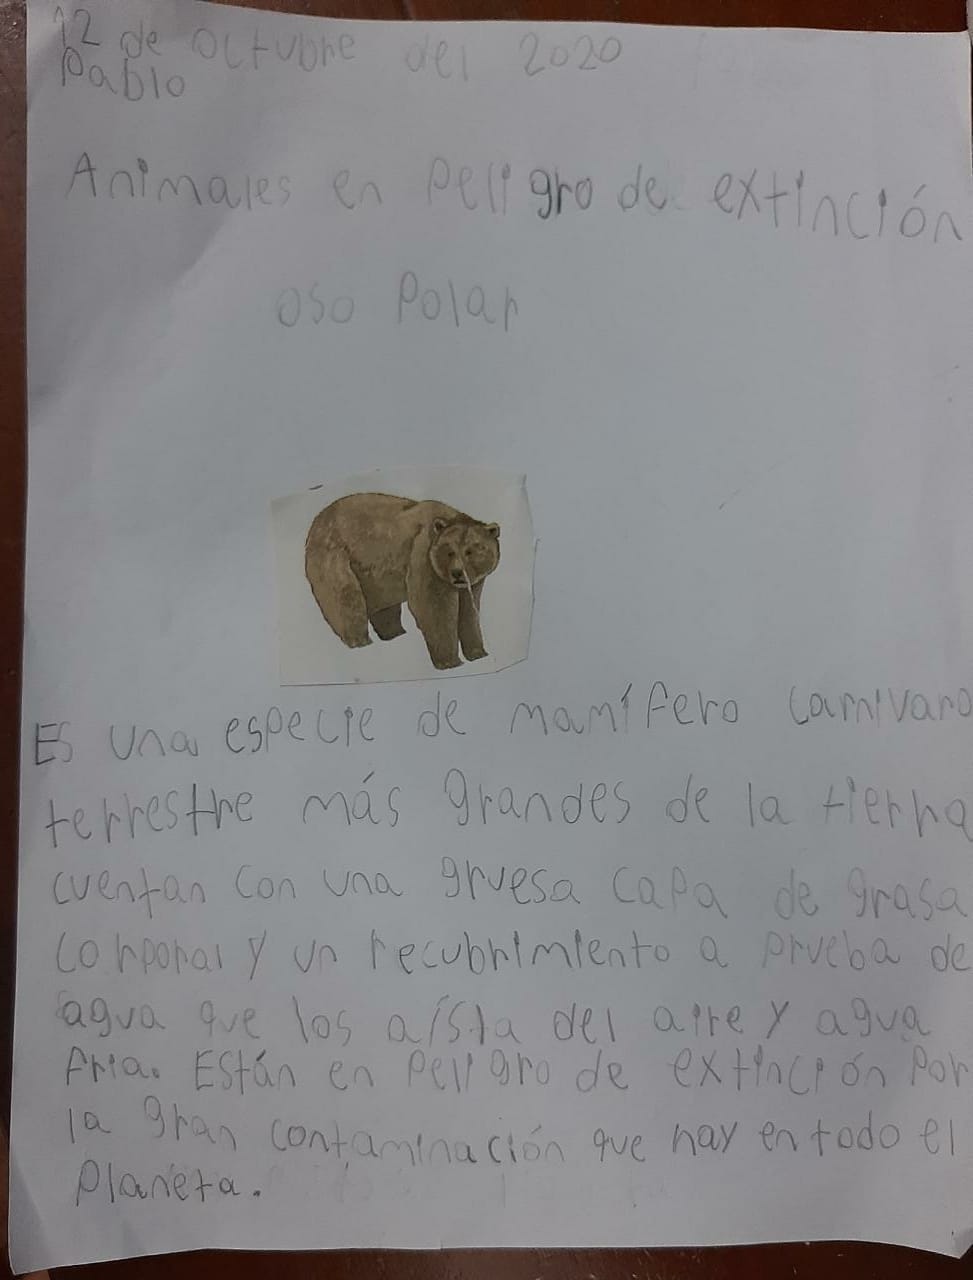 12 de octubre del 2020
Pablo
Animales en peligro de extinción
oso Polar
Es una especie de mamífero carnivaro
terrestre más grandes de la tierra
cuentan con una gruesa capa de grasa
corporal y un recubrimiento a prueba de
agua que los aísta del aire y agua
fria. Están en peligro de extinción por
la gran contaminación que hay en todo el
planeta.